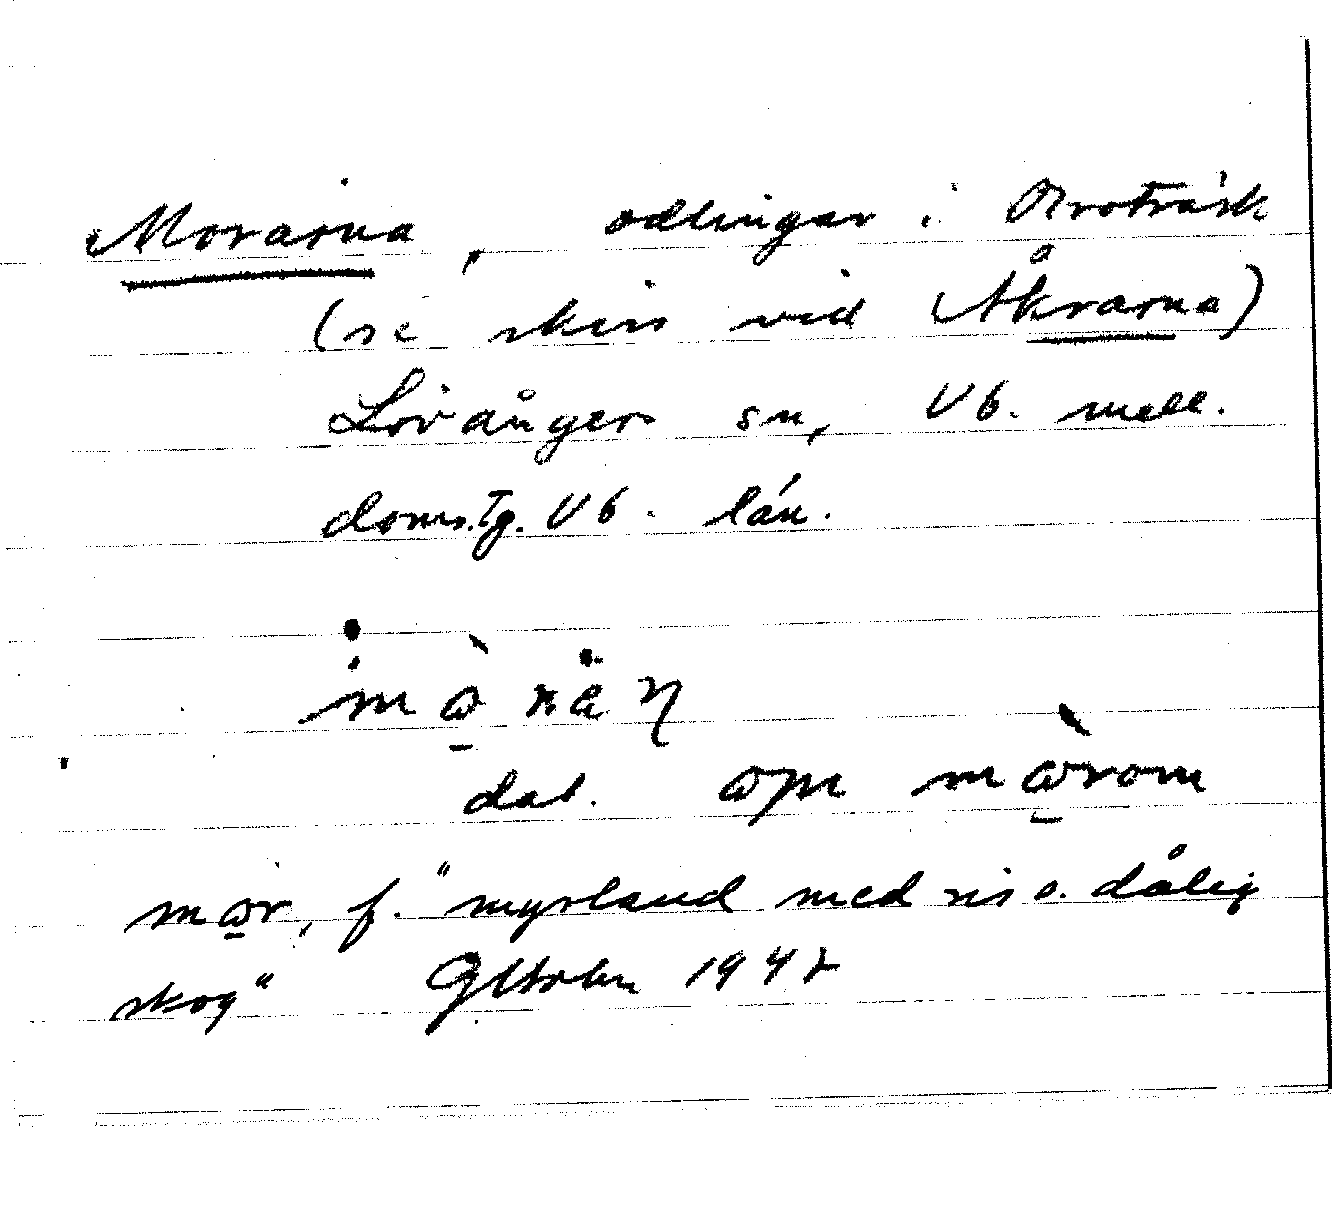 Morarna, odlingar i Broträsk
(se skiss vid Åkrarna)
Lövånger sn, Vb. mell.
doms.tg. Vb. län.
dat. mɷ̀rom
mɷr, f. "myrland med ris o. dålig
skog" 1947